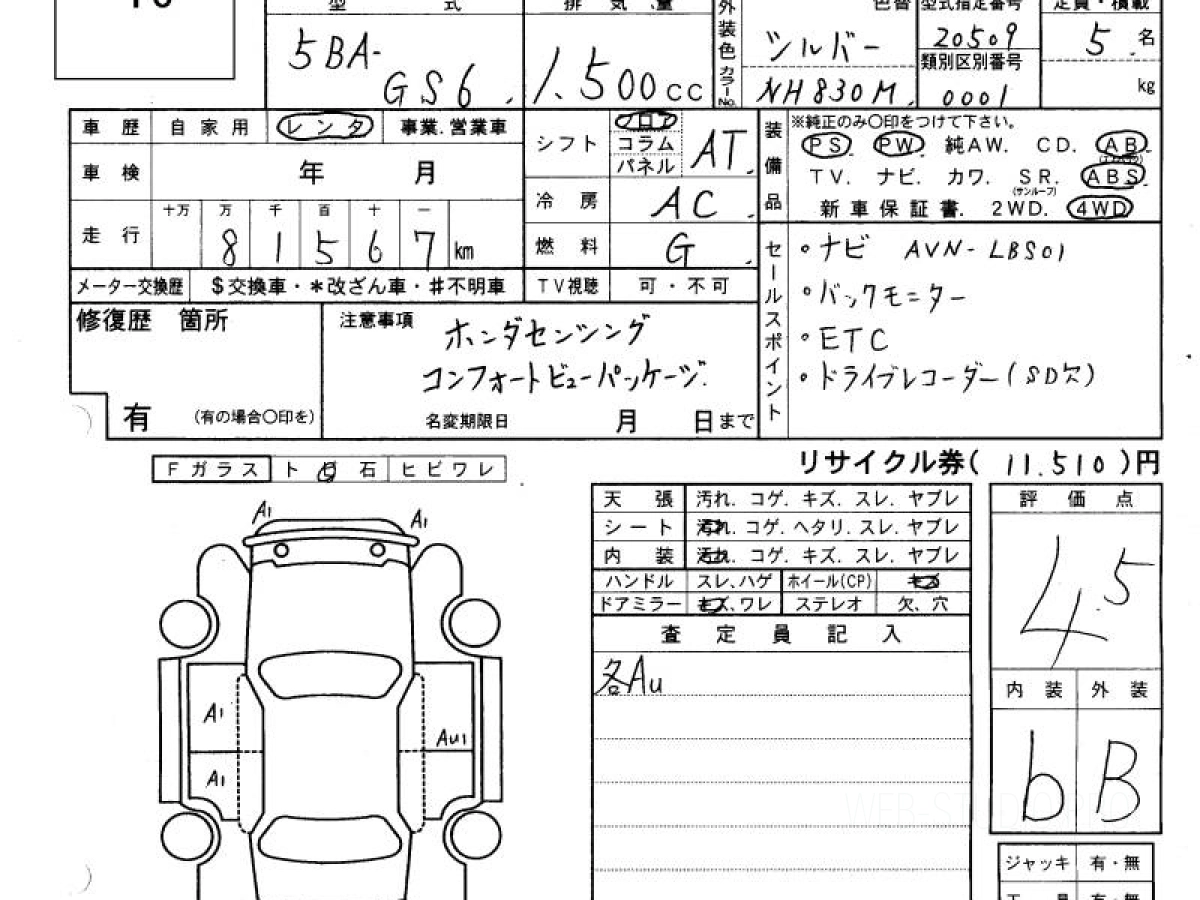 型 式
5BA-
GS6.
排 気 量
1.500cc
外装色 カラーNo.
色替
シルバー
NH830M.
型式指定番号
20509
類別区別番号
0001
定員・積載
5.名
kg
車歴 自家用 レンタ 事業.営業車
車検 年 月
走行 十万 万 千 百 十 一
8 1 5 6 7 km
メーター交換歴 $交換車・*改ざん車・#不明車
シフト フロア コラム パネル AT.
冷房 AC.
燃料 G.
TV視聴 可・不可
装備品
※純正のみ〇印をつけて下さい。
PS. PW. 純AW. CD. AB.
TV. ナビ. カワ. SR. ABS.
(サンルーフ)
新車保証書. 2WD. 4WD
セールスポイント
・ナビ AVN-LBS01
・バックモニター
・ETC
・ドライブレコーダー(SD欠)
修復歴 箇所
有 (有の場合〇印を)
注意事項
ホンダセンシング
コンフォートビューパッケージ.
名変期限日 月 日まで
リサイクル券( 11.510 )円
Fガラス ト 石 ヒビワレ
A1
A1
A1
A1
Au1
天張 汚れ. コゲ. キズ. スレ. ヤブレ
シート 汚れ. コゲ. ヘタリ. スレ. ヤブレ
内装 汚れ. コゲ. キズ. スレ. ヤブレ
ハンドル スレ、ハゲ ホイール(CP) キズ
ドアミラー キズ、ワレ ステレオ 欠、穴
査定員記入
各Au
評価点
4.5
内装 外装
b B
ジャッキ 有・無
工具 有・無